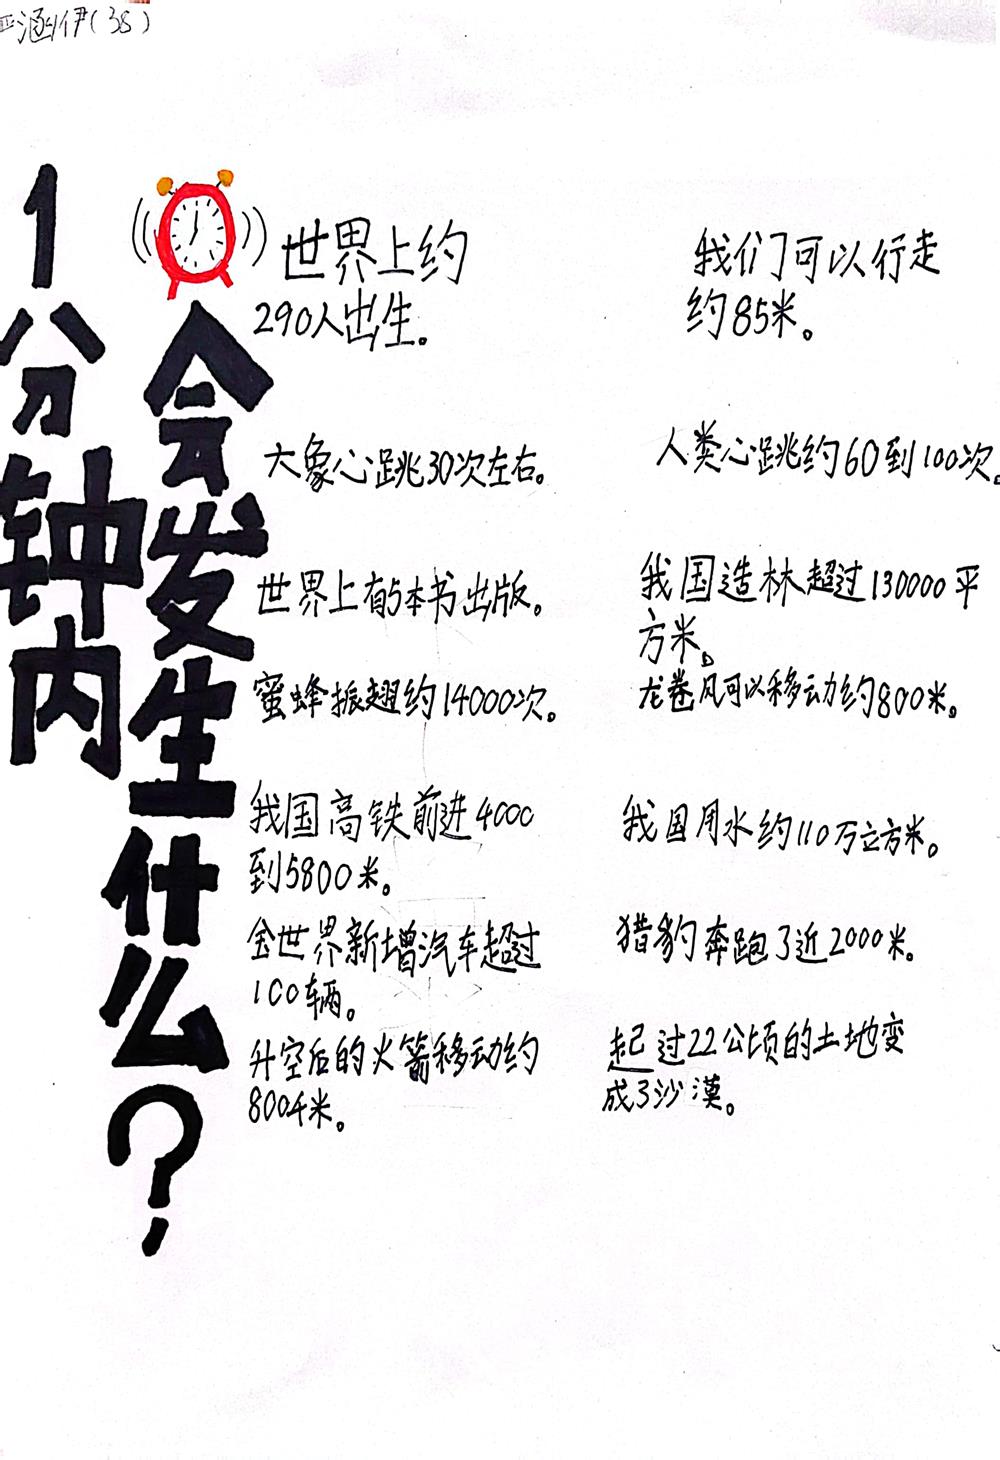 涵伊(38)
1分钟内
会发生什么?
世界上约
290人出生。
大象心跳30次左右。
世界上有5本书出版。
蜜蜂振翅约14000次。
我国高铁前进4000
到5800米。
全世界新增汽车超过
100辆。
升空后的火箭移动约
8004米。
我们可以行走
约85米。
人类心跳约60到100次。
我国造林超过130000平
方米。
龙卷风可以移动约800米。
我国用水约110万立方米。
猎豹奔跑了近2000米。
起过22公顷的土地变
成了沙漠。